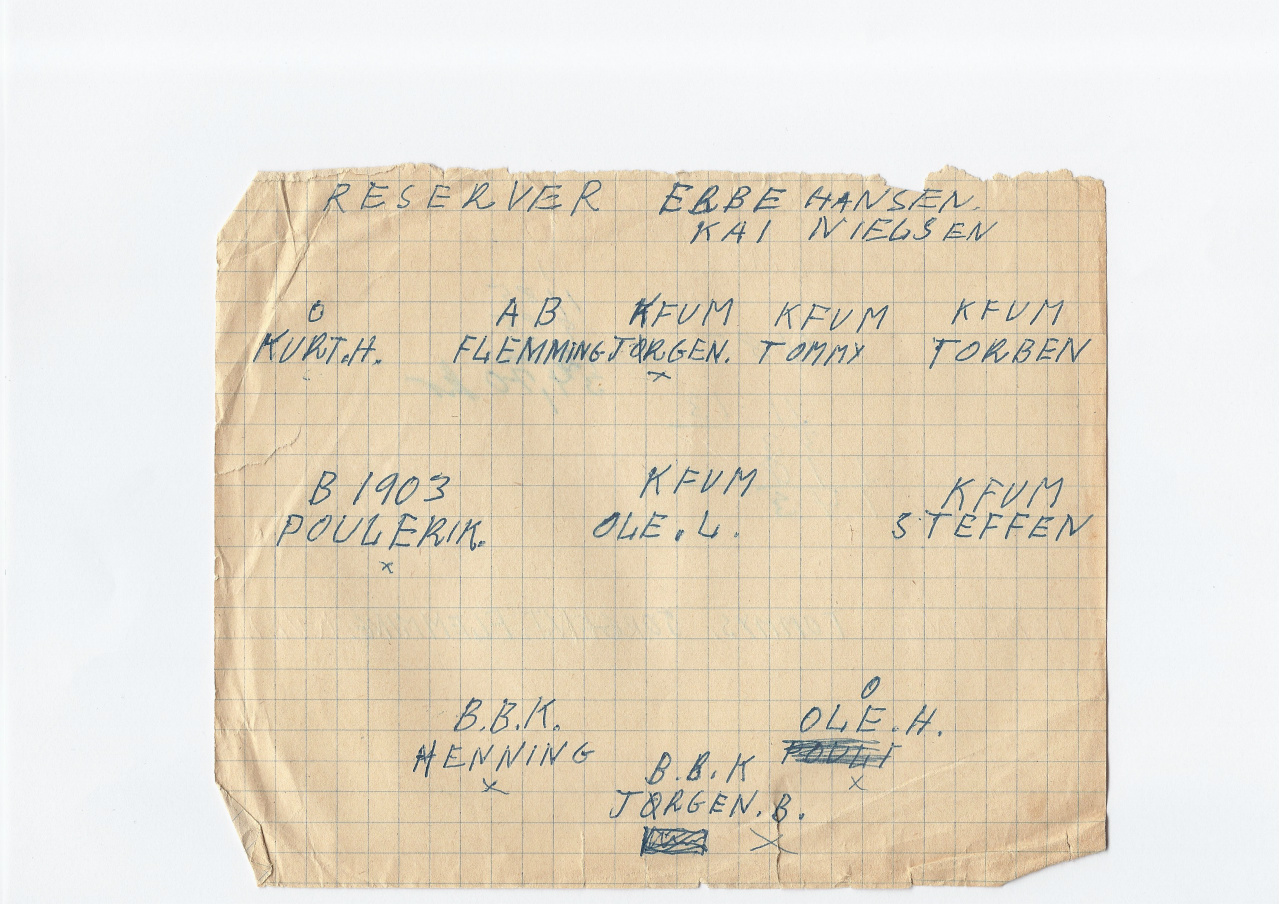 RESERVER EBBE HANSEN.
KAI NIELSEN
O AB KFUM KFUM KFUM
KURT.H. FLEMMING JØRGEN. TOMMY TORBEN
x
B 1903 KFUM KFUM
POULERIK. OLE.L. STEFFEN
x
O
B.B.K. OLE.H.
HENNING
B.B.K
x x
JØRGEN.B.
x